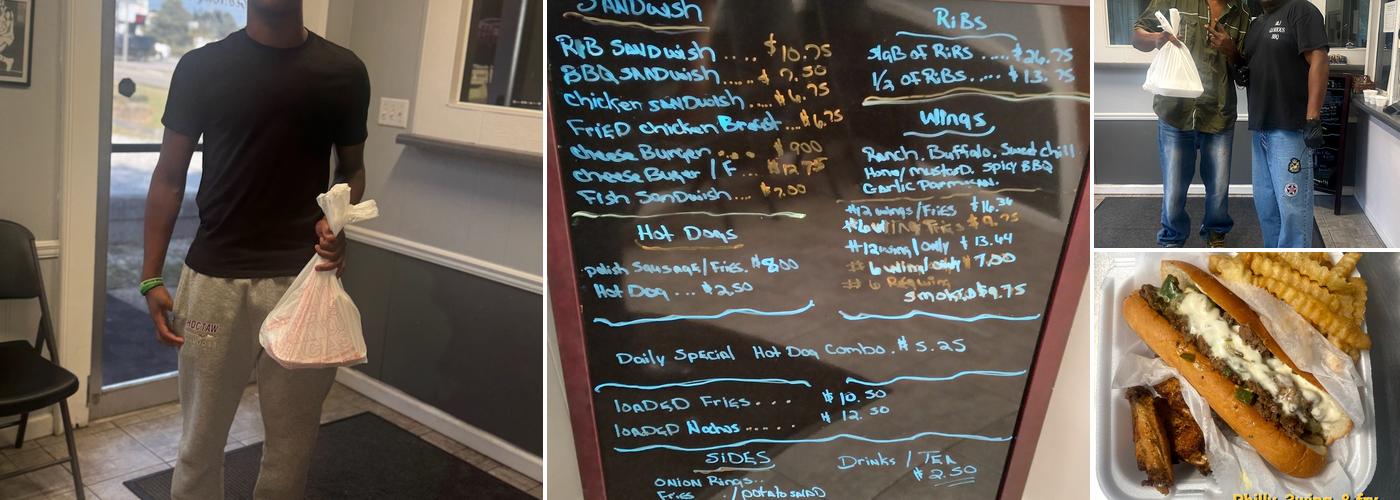 HOCTAW
SANDwish
RIB SANDwish..... $10.75
BBQ SANDwish..... $ 7.50
chicken SANDwish.... $6.75
FRiED chicken Breast... $6.75
cheese Burger.... $ 900
cheese Buger / F... $12.75
Fish Sandwish... $7.00
Hot Dogs
polish sausage/FRiES. $8.00
Hot Dog ... $2.50
RiBS
slaB of RiBS ..... $26.75
1/2 of RiBS..... $13.75
Wings
Ranch, Buffalo, Sweet chili
Honey mustard, spicy BBQ
Garlic Parmesan.
#12 wings/FRiES $16.36
$9.75
#12 wing/only $ 13.44
# 6 wing/only $ 7.00
# 6
smoked $9.75
Daily Special Hot Dog Combo. $ 5.25
loaDED FRiES... $ 10.50
loaDED Nachos ..... $ 12.50
SiDES
ONiON Rings...
FRiES ... /potato salad
Drinks / TEA
$ 2.50
BBQ